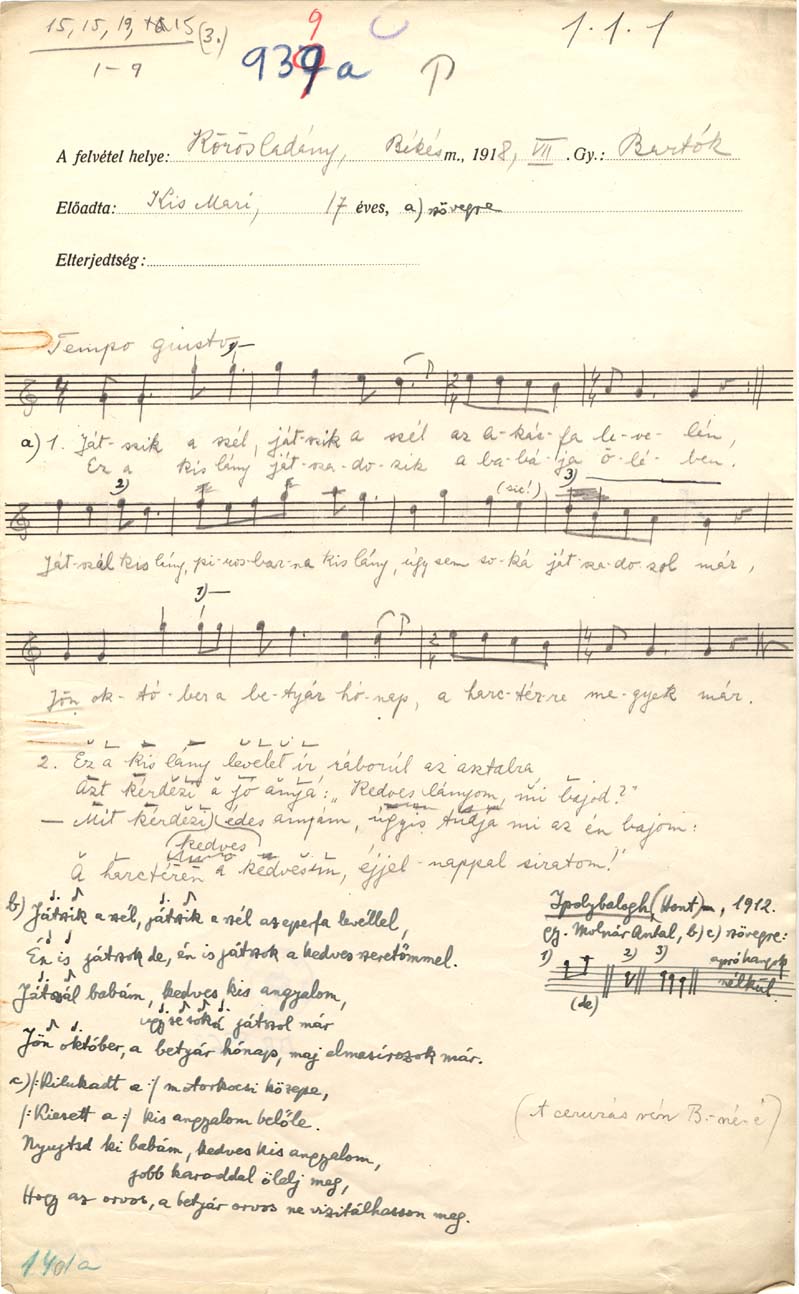 15, 15, 19, 15 (3.)
1–9
9
939a
P
1.1.1
A felvétel helye: Körösladány, Békés m., 1918, VII. Gy.: Bartók
Előadta: Kis Mari, 17 éves, a) szövegre
Elterjedtség:
Tempo giusto
1)
a) 1. Ját-szik a szél, ját-szik a szél az a-kác-fa le-ve-lén,
Ez a kis lány ját-sza-do-zik a ba-bá-ja ö-lé-ben.
2) (sic!) 3)
Ját-szál kis lány, pi-ros-bar-na kis lány, úgy sem so-ká ját-sza-do-zol már,
1)
Jön ok-tó-ber a be-tyár hó-nap, a harc-tér-re me-gyek már.
2. Ez a kis lány levelet ír ráborúl az asztalra,
Azt kérdëzi a jó anyá: „Kedves lányom, mi bajod?"
— Mit kérdëzi édes anyám, úgyis tudja mi az én bajom:
kedves
A harctérën a kedvesëm, éjjel-nappal siratom!"
b) Játszik a szél, játszik a szél az eperfa levéllel,
Én is játszok de, én is játszok a kedves szeretőmmel.
Játszál babám, kedves kis angyalom,
úgyse soká játszol már
Jön október, a betyár hónap, maj elmasírozok már.
c) /:Kilukadt a:/ motorkocsi közepe,
/:Kiesett a:/ kis angyalom belőle.
Nyujtsd ki babám, kedves kis angyalom,
jobb karoddal ölelj meg,
Hogy az orvos, a betyár orvos ne vizitálhasson meg.
Ipolybalogh (Hont), 1912.
gy. Molnár Antal, b) c) szövegre:
1) 2) 3) apróhangok
nélkül
(de)
(A ceruzás rén B.-né-é)
1401a